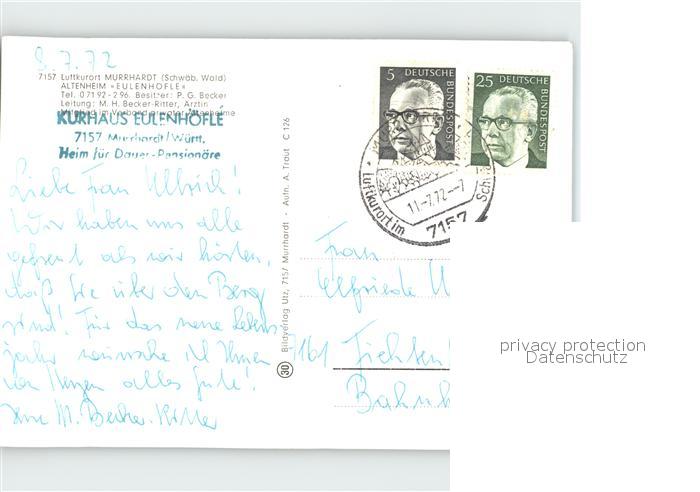 8.7.72
7157 Luftkurort MURRHARDT (Schwäb. Wald)
ALTENHEIM »EULENHÖFLE«
Tel. 07192-296. Besitzer: P. G. Becker
Leitung: M. H. Becker-Ritter, Ärztin
Mitglied im Verband privater Altenheime
KURHAUS EULENHÖFLE
7157 Murrhardt/Württ.
Heim für Dauer-Pensionäre
Liebe Frau Ullrich!
Wir haben uns alle
gefreut als wir hörten,
daß Sie über den Berg
sind! Für das neue Lebens
jahr wünsche ich Ihnen
von Herzen alles Gute!
Ihre M. Becker-Ritter
Bildverlag Utz, 7157 Murrhardt - Aufn. A. Traut C 126
30
5 DEUTSCHE BUNDESPOST
25 DEUTSCHE BUNDESPOST
Luftkurort im Schw
11.-7.72.--7
7157
Frau
Elfriede U
7161 Fichten
Bahnh
privacy protection
Datenschutz